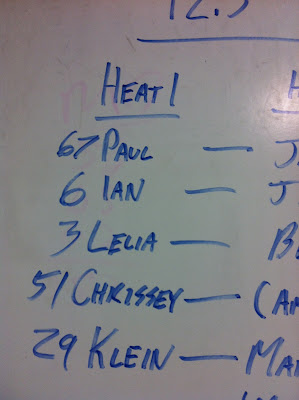 12.3
HEAT 1
67 PAUL — J
6 IAN — J
3 LELIA — B
51 CHRISSEY —
29 KLEIN — MA